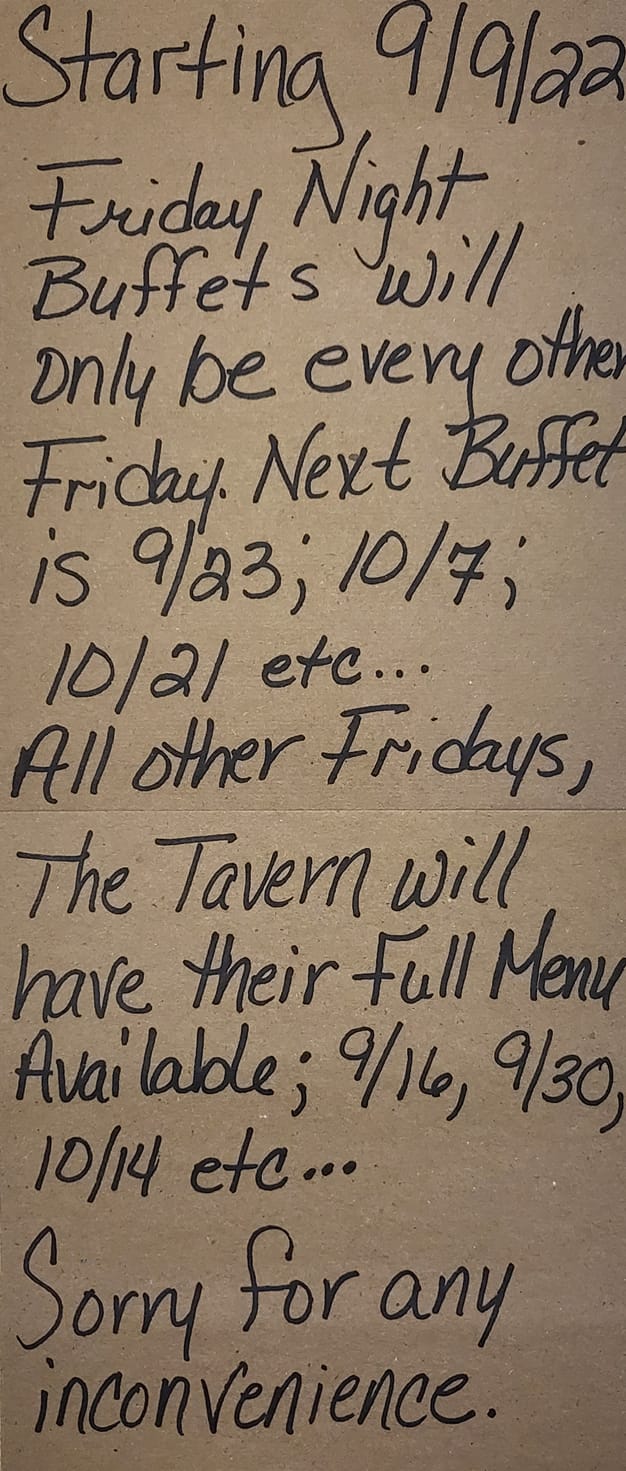 Starting 9/9/22
Friday Night
Buffets will
only be every other
Friday. Next Buffet
is 9/23; 10/7;
10/21 etc...
All other Fridays,
The Tavern will
have their Full Menu
Available; 9/16, 9/30,
10/14 etc...
Sorry for any
inconvenience.